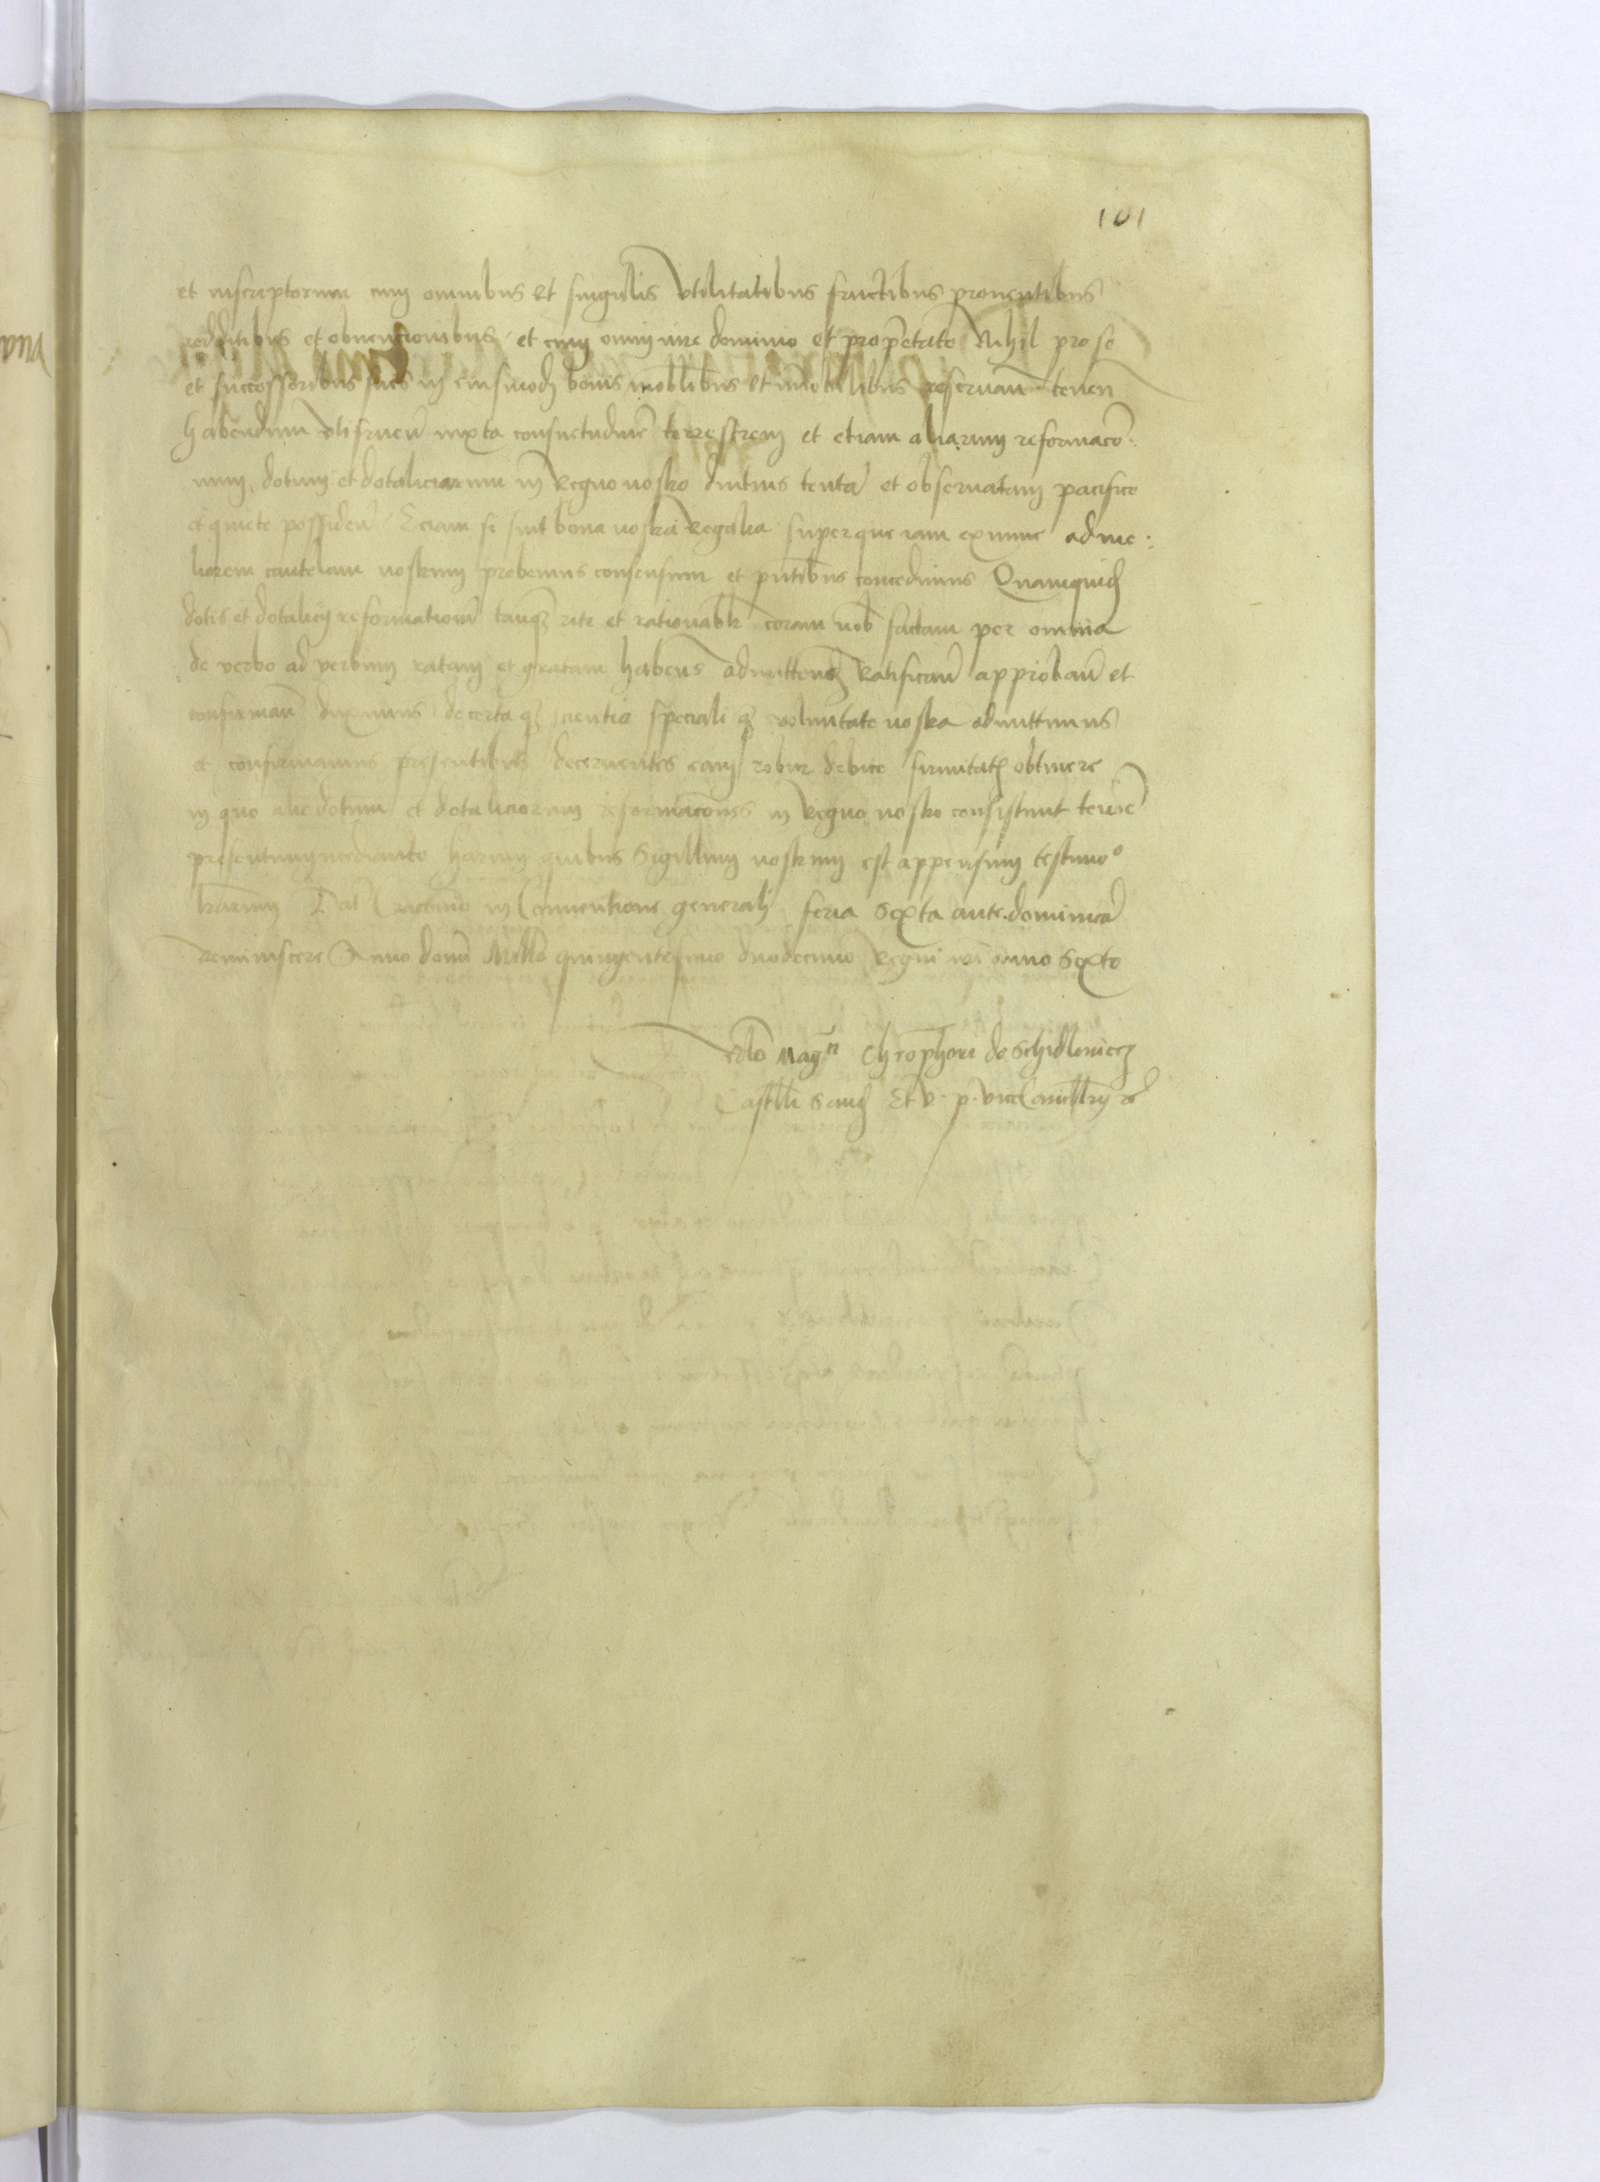 101
et inscriptorum cum omnibus et singulis vtilitatibus fructibus prouentibus
redditibus et obuencionibus et cum omni iure dominio et propetate Nihil pro se
et successoribus suis in eiusmodj bonis mobilibus et immobilibus reseruan tenen
habendum vtifruen iuxta consuetudinē terrestrem et etiam aliarum reformacō
num dotum et dotaliciorum in Regno nostro diutius tentā et obseruatam pacifice
et quiete possiden Eciam si sint bona nostra Regalia super que iam ex nunc ad me
liorem cautelam nostrum prebemus consensum et pntibus concedimus Quamquid
dotis et dotalicij reformationē tanq3 rite et rationabilr coram nob factam per omnia
de verbo ad verbum ratam et gratam habens admittend Ratificand approband et
confirmand duximus de certa q3 scientia speciali q3 voluntate nostra admittimus
et confirmamus presentibus decernentes eam robur debite firmitatis obtinere
in quo alie dotum et dotaliciorum reformaconis in Regno nostro consistunt tenore
presentium mediante harum quibus Sigillum nostrum est appensum testimo°
lrarum Dat Cracouie in Conuentione generali feria Sexta ante dominicā
reminiscere Anno domi Millo quingentesimo duodecimo Regni nri anno Sexto
Relō Magci Chrophori de Schidlouiecz
Castelli Sand Et R. p. viceCancellrij rc